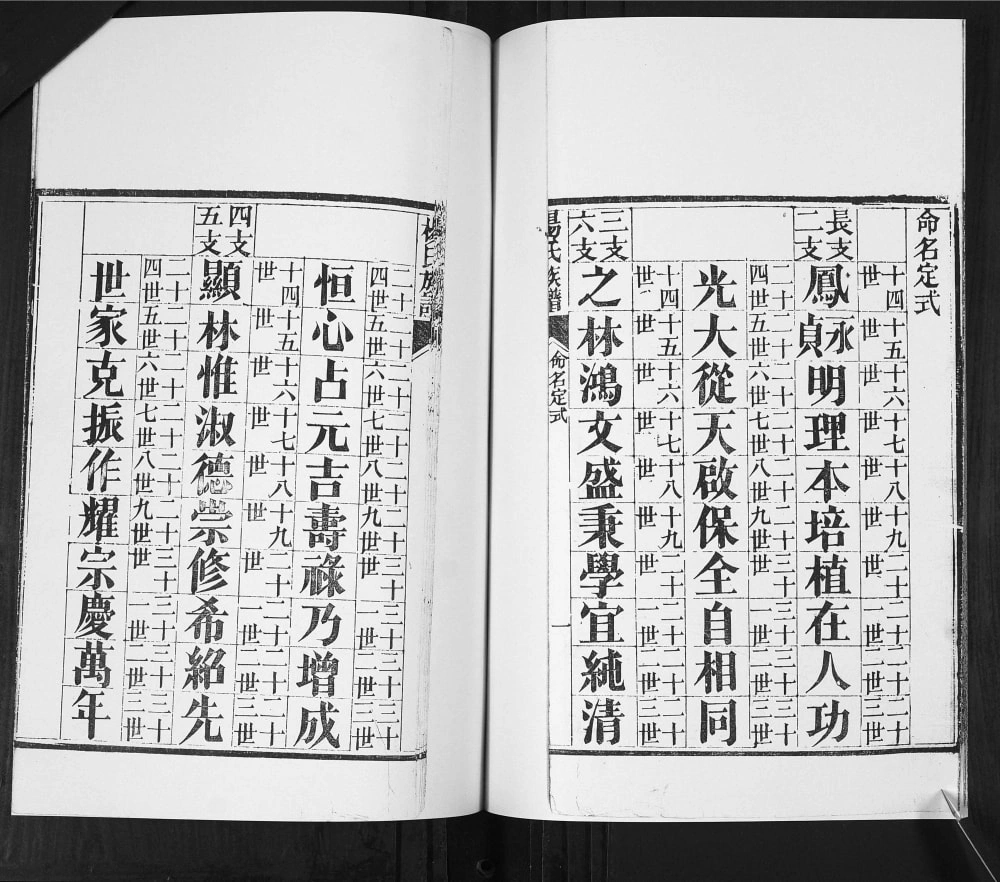 命名定式
十四世 十五世 十六世 十七世 十八世 十九世 二十世 二十一世 二十二世 二十三世
長支
二支
鳳永貞明理本培植在人功
二十四世 二十五世 二十六世 二十七世 二十八世 二十九世 三十世 三十一世 三十二世 三十三世
光大從天啟保全自相同
十四世 十五世 十六世 十七世 十八世 十九世 二十世 二十一世 二十二世 二十三世
三支
六支
之林鴻文盛秉學宜純清
楊氏族譜 命名定式 一
楊氏族譜
二十四世 二十五世 二十六世 二十七世 二十八世 二十九世 三十世 三十一世 三十二世 三十三世
恒心占元吉壽祿乃增成
十四世 十五世 十六世 十七世 十八世 十九世 二十世 二十一世 二十二世 二十三世
四支
五支
顯林惟淑德崇修希紹先
二十四世 二十五世 二十六世 二十七世 二十八世 二十九世 三十世 三十一世 三十二世 三十三世
世家克振作耀宗慶萬年